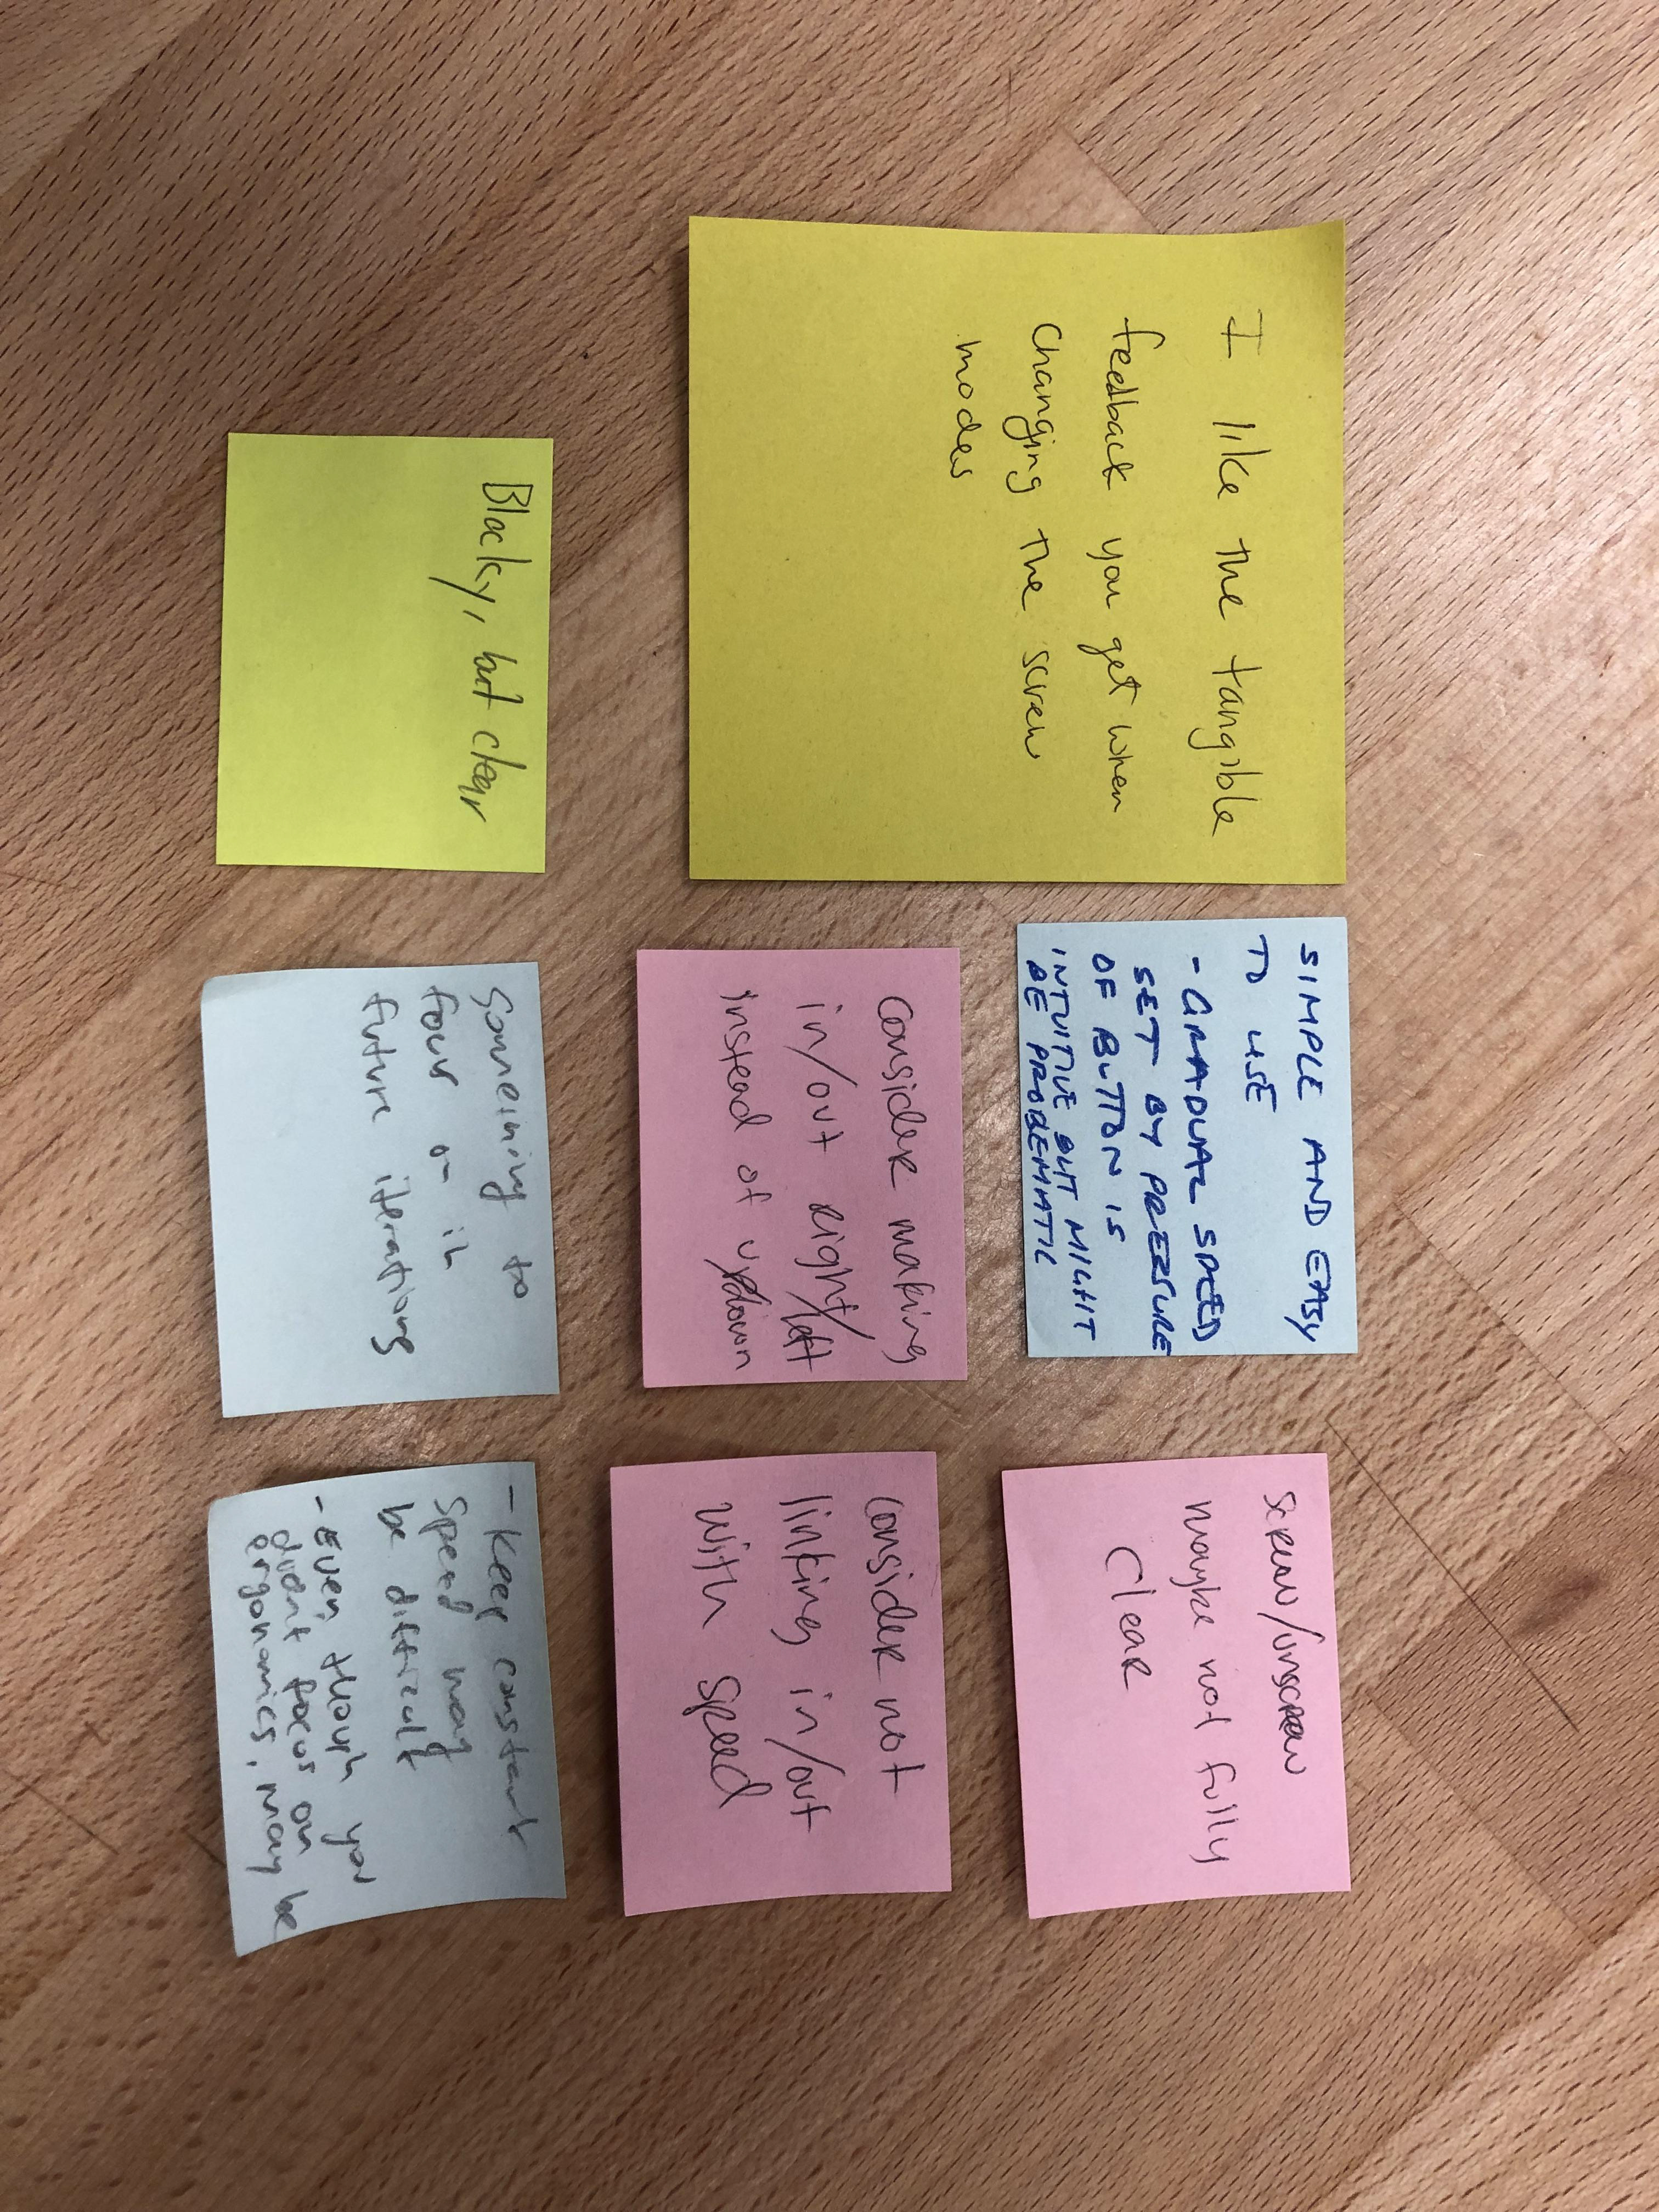 I like the tangible
feedback you get when
changing the screw
modes
SIMPLE AND EASY
TO USE
- GRADUAL SPEED
SET BY PRESSURE
OF BUTTON IS
INTUITIVE BUT MIGHT
BE PROBEMATIC
screw/unscrew
maybe not fully
clear
Consider making
in/out right/left
instead of up/down
Consider not
linking in/out
with speed
Blocky, but clear
Something to
focus on in
future iterations
- Keep constant
speed may
be difficult
- Even though you
didnt focus on
ergonomics, may be